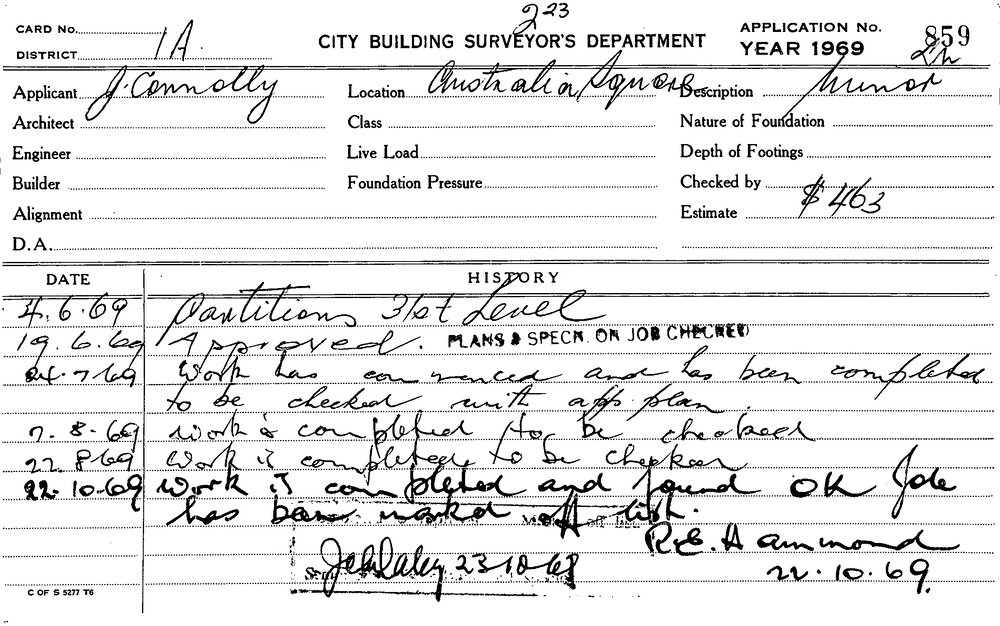 223
CARD No. CITY BUILDING SURVEYOR'S DEPARTMENT APPLICATION No. 859
DISTRICT 1A YEAR 1969
Applicant J. Connolly Location Australia Square Description Minor
Architect Class Nature of Foundation
Engineer Live Load Depth of Footings
Builder Foundation Pressure Checked by
Alignment Estimate $463
D.A.
DATE HISTORY
4.6.69 Partitions 31st Level
19.6.69 Approved. PLANS & SPECN. ON JOB CHECKED
24.7.69 Work has commenced and has been completed
to be checked with app. plan.
7.8.69 Work is completed to be checked
22.8.69 Work is completed to be checked
22.10.69 Work is completed and found OK Job
has been marked off list.
R.E. Hammond
23-10-69
22.10.69.
C OF S 5277 T6